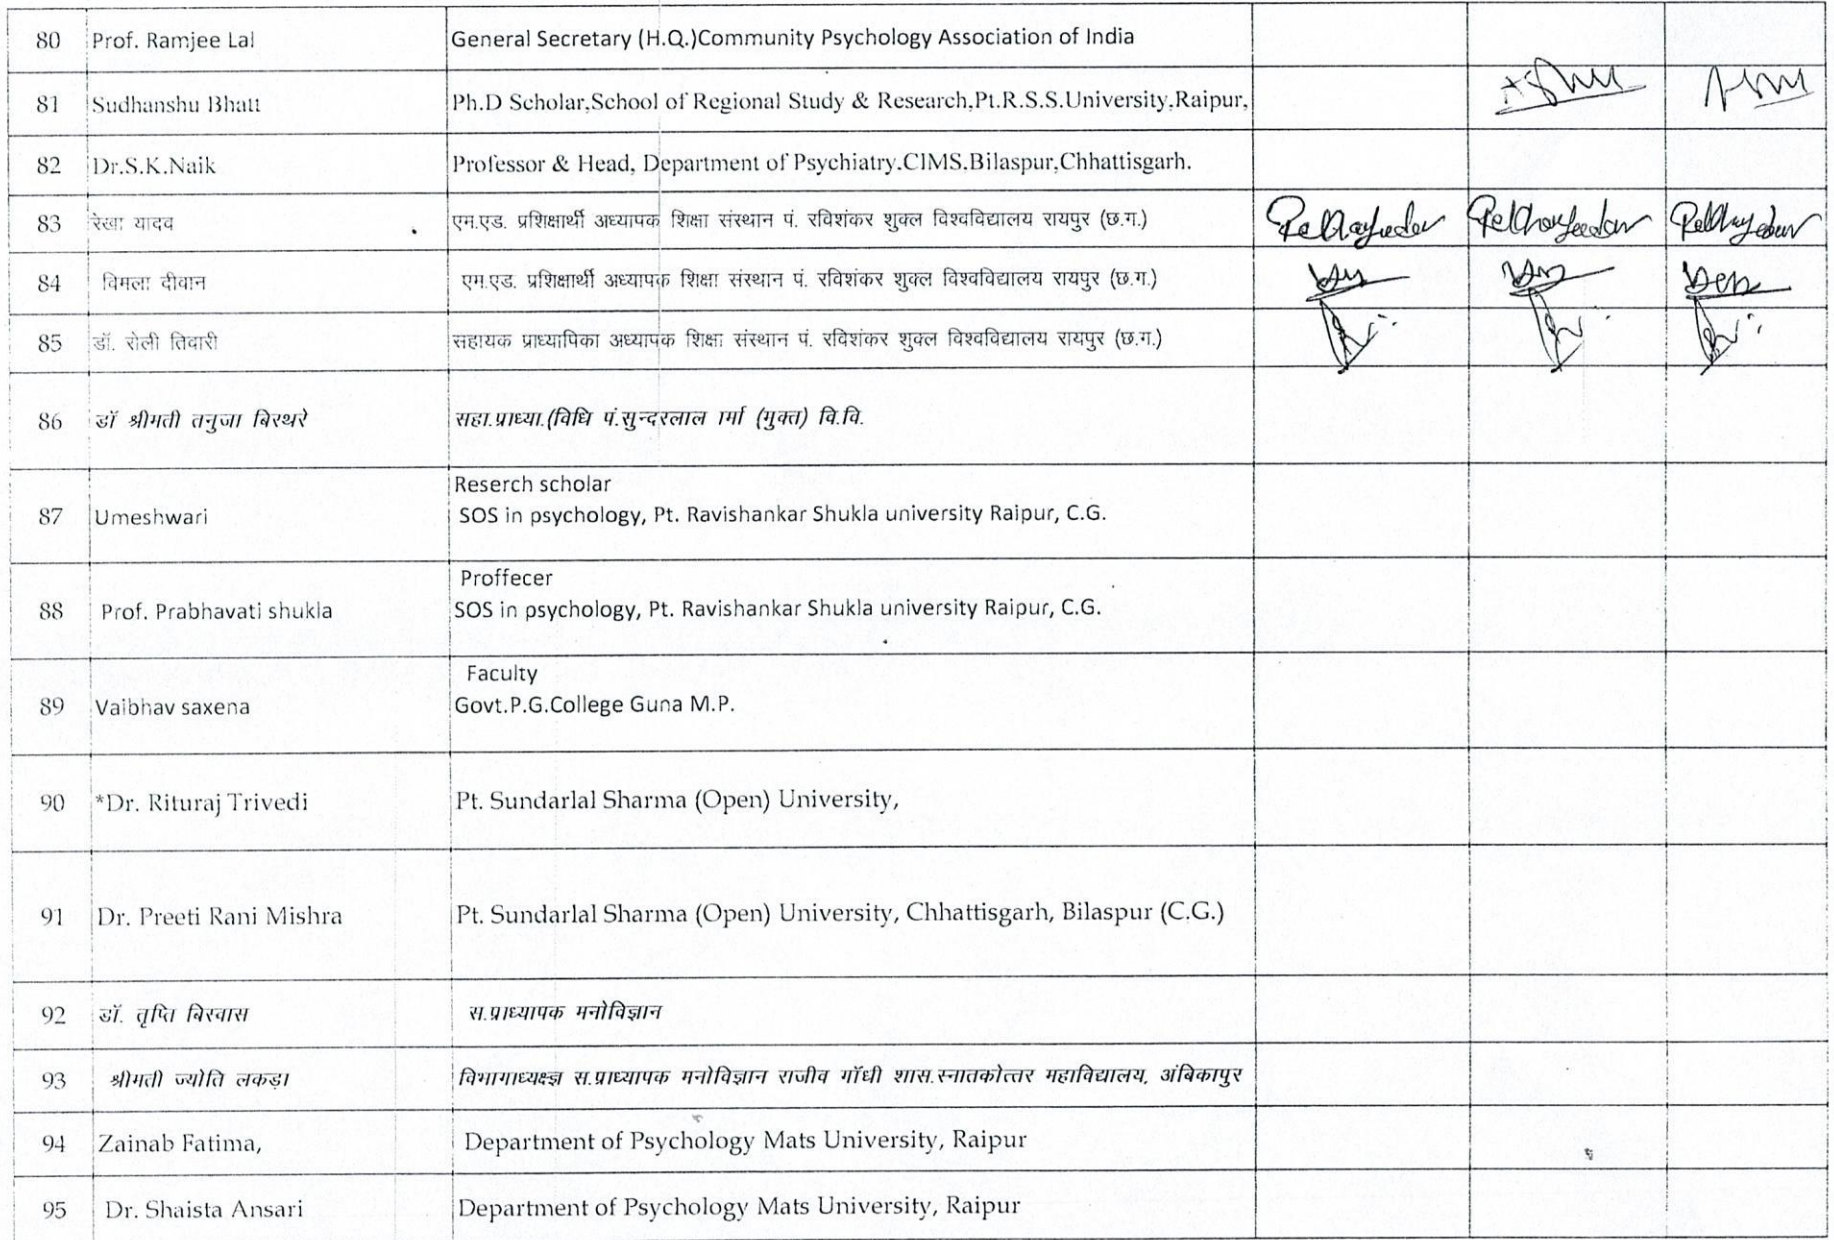 80 Prof. Ramjee Lal General Secretary (H.Q.)Community Psychology Association of India
81 Sudhanshu Bhatt Ph.D Scholar,School of Regional Study & Research,Pt.R.S.S.University,Raipur,
82 Dr.S.K.Naik Professor & Head, Department of Psychiatry.CIMS.Bilaspur,Chhattisgarh.
83 रेखा यादव एम.एड. प्रशिक्षार्थी अध्यापक शिक्षा संस्थान पं. रविशंकर शुक्ल विश्वविद्यालय रायपुर (छ.ग.)
84 विमला दीवान एम.एड. प्रशिक्षार्थी अध्यापक शिक्षा संस्थान पं. रविशंकर शुक्ल विश्वविद्यालय रायपुर (छ.ग.)
85 डॉ. रोली तिवारी सहायक प्राध्यापिका अध्यापक शिक्षा संस्थान पं. रविशंकर शुक्ल विश्वविद्यालय रायपुर (छ.ग.)
86 डॉ श्रीमती तनुजा बिरथरे सहा.प्राध्या.(विधि पं.सुन्दरलाल ार्मा (मुक्त) वि.वि.
Reserch scholar
87 Umeshwari SOS in psychology, Pt. Ravishankar Shukla university Raipur, C.G.
Proffecer
88 Prof. Prabhavati shukla SOS in psychology, Pt. Ravishankar Shukla university Raipur, C.G.
Faculty
89 Vaibhav saxena Govt.P.G.College Guna M.P.
90 *Dr. Rituraj Trivedi Pt. Sundarlal Sharma (Open) University,
91 Dr. Preeti Rani Mishra Pt. Sundarlal Sharma (Open) University, Chhattisgarh, Bilaspur (C.G.)
92 डॉ. तृप्ति बिस्वास स.प्राध्यापक मनोविज्ञान
93 श्रीमती ज्योति लकड़ा विभागाध्यक्ष्ज्ञ स.प्राध्यापक मनोविज्ञान राजीव गॉधी शास.स्नातकोत्तर महाविद्यालय, अंबिकापुर
94 Zainab Fatima, Department of Psychology Mats University, Raipur
95 Dr. Shaista Ansari Department of Psychology Mats University, Raipur